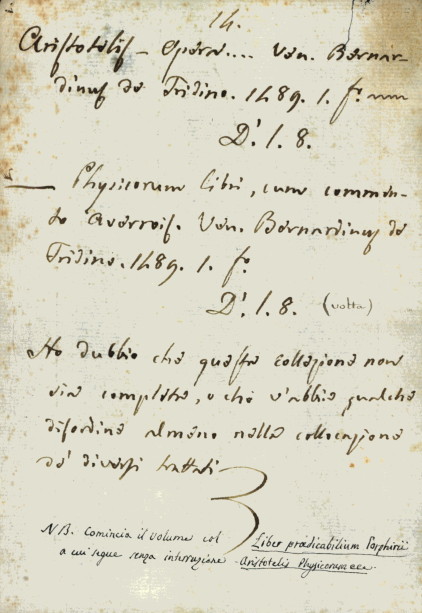 14.
Aristotelis – Opera.... Ven. Bernar-
dinus de Tridino. 1489. 1. fº.
Dº. 1. 8.
— Physicorum libri, cum commen-
to Averrois. Ven. Bernardinus de
Tridino. 1489. 1. fº
Dº. 1. 8. (volta)
Ho dubbio che questa collezione non
sia completa, o che v'abbia qualche
disordine almeno nella collocazione
de' diversi trattati
NB. Comincia il volume col Liber prædicabilium Porphirii
a cui segue senza interruzione Aristotelis Physicorum